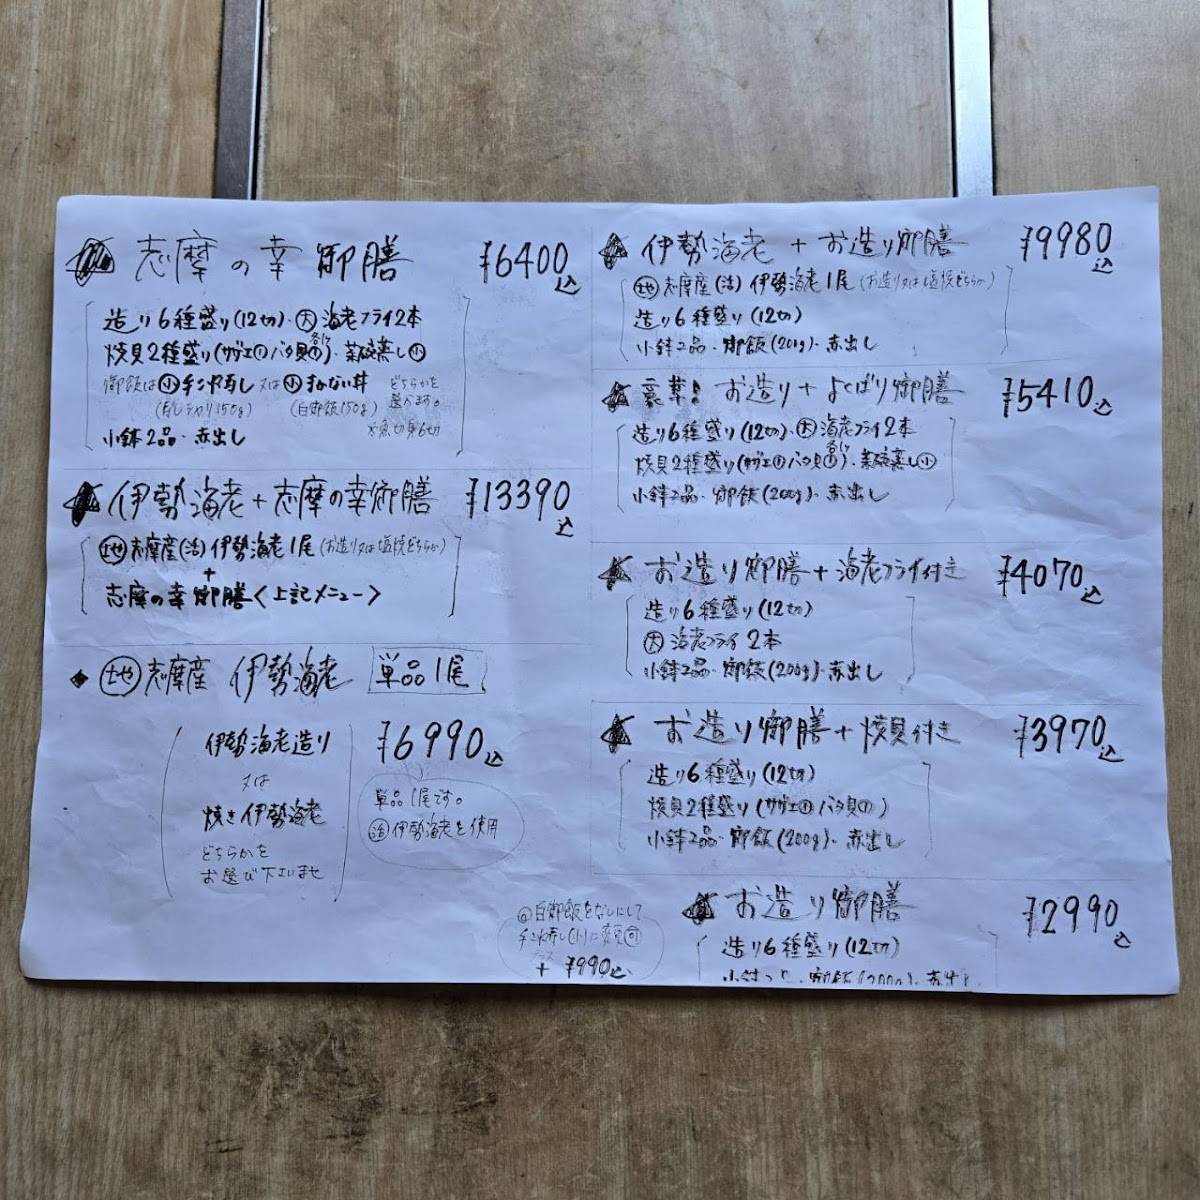 志摩の幸御膳 ¥6400込
造り6種盛り(12切)・大 海老フライ2本
焼貝2種盛り(サザエ1 バタ貝1 各1ヶ)・茶碗蒸し小
御飯は小手こね寿し又は小まかない丼 どちらかを選べます。
(寿しシャリ150g) (白御飯150g) 火魚切身6切
小鉢2品・赤出し
伊勢海老+志摩の幸御膳 ¥13390込
地志摩産(活)伊勢海老1尾(お造り又は塩焼どちらか)
+
志摩の幸御膳<上記メニュー>
地志摩産 伊勢海老 単品1尾
伊勢海老造り
又は
焼き伊勢海老
どちらかを
お選び下さいませ
¥6990込
単品1尾です。
活伊勢海老を使用
伊勢海老+お造り御膳 ¥9980込
地志摩産(活)伊勢海老1尾(お造り又は塩焼どちらか)
造り6種盛り(12切)
小鉢2品・御飯(200g)・赤出し
豪華!お造り+よくばり御膳 ¥5410込
造り6種盛り(12切)・大海老フライ2本
焼貝2種盛り(サザエ1 バタ貝1 各1ヶ)・茶碗蒸し小
小鉢2品・御飯(200g)・赤出し
お造り御膳+海老フライ付き ¥4070込
造り6種盛り(12切)
大 海老フライ2本
小鉢2品・御飯(200g)・赤出し
お造り御膳+焼貝付き ¥3970込
造り6種盛り(12切)
焼貝2種盛り(サザエ1 バタ貝1)
小鉢2品・御飯(200g)・赤出し
白御飯をなしにして
手こね寿し(小)に変更可
プラス
+ ¥990込
お造り御膳 ¥2990込
造り6種盛り(12切)
小鉢2品・御飯(200g)・赤出し